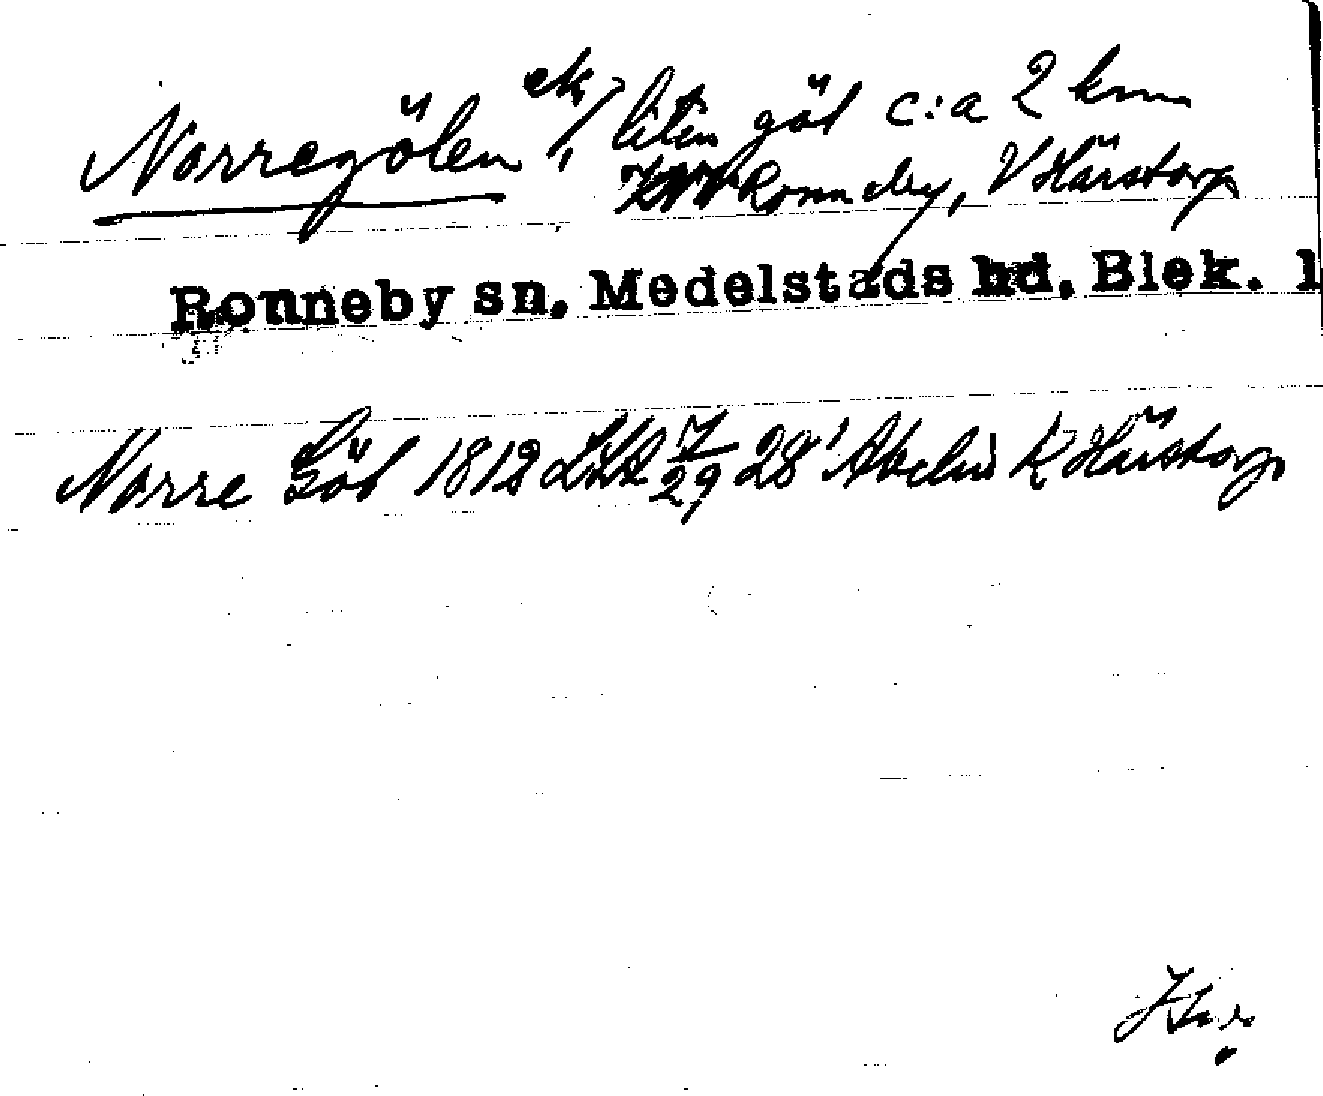 Norregölen ek, liten göl c:a 2 km
Ronneby, V Härstorp
Ronneby sn, Medelstads hd, Blek. l
Norre Göl 1812 LSA 7/29 28' Abelin K Härstorp